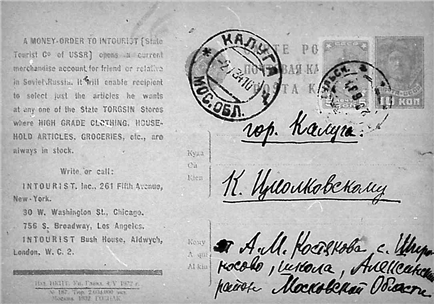 A MONEY-ORDER TO INTOURIST [State
Tourist Cº of USSR] opens a current
merchandise account, for friend or relative
in Soviet Russia. It will enable recipient
to select just the articles he wants
at any one of the State TORGSIN Stores
where HIGH GRADE CLOTHING, HOUSE-
HOLD ARTICLES, GROCERIES, etc., are
always in stock.
Write or call:
INTOURIST, Inc., 261 Fifth Avenue,
New-York.
30 W. Washington St., Chicago.
756 S. Broadway, Los Angeles.
INTOURIST Bush House, Aldwych,
London, W. C. 2.
КАЛУГА
МОС.ОБЛ.
КОП
Куда
Кому
гор. Калуга.
К. Циолковскому
от А. М. Костякова с. Широ-
косово, школа, Александр
район Московской Области